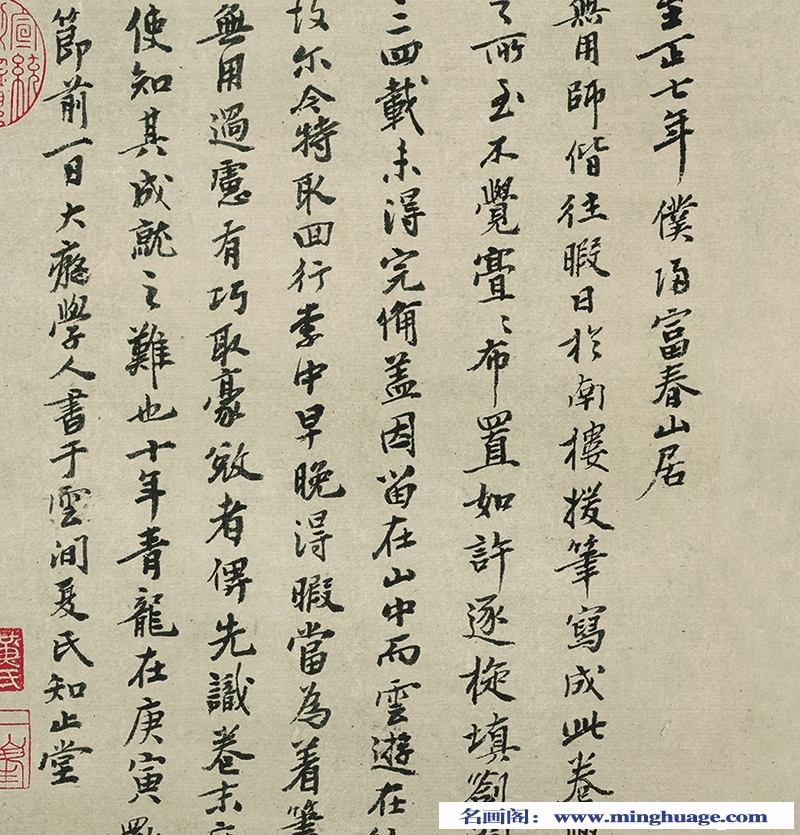 至正七年僕歸富春山居
無用師偕往暇日於南樓援筆寫成此卷
之所至不覺亹〻布置如許逐旋填劄
三四載未得完備盖因留在山中而雲遊在
故尔今特取回行李中早晚得暇當為着筆
無用過慮有巧取豪敓者俾先識卷末
使知其成就之難也十年青龍在庚寅
節前一日大癡學人書于雲間夏氏知止堂
宣統
黃氏
一峯
名画阁：www.minghuage.com